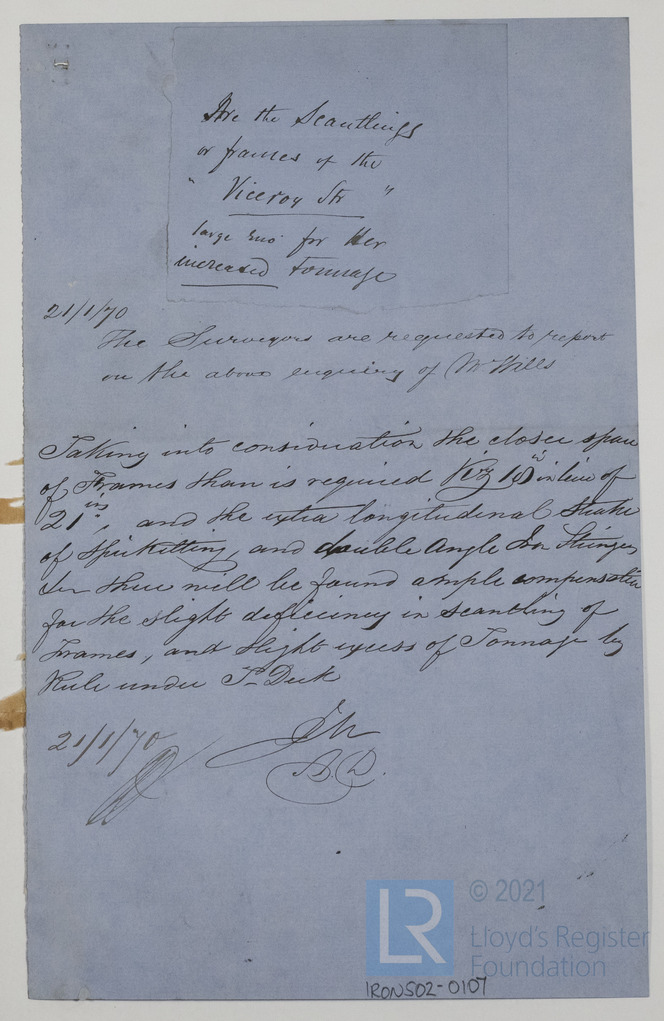 Are the Scantlings
or frames of the
" Viceroy Str "
large eno. for Her
increased Tonnage
21/1/70
The Surveyors are requested to report
on the above enquiry of Mr Wills
Taking into consideration the closer space
of Frames than is required Viz 18" in lieu of
21 ins, and the extra longitudinal Strake
of Spirketting, and double Angle Iron Stringer
there will be found ample compensation
for the slight deficiency in scantling of
Frames, and slight excess of Tonnage by
Rule under Deck
21/1/70
© 2021
LR
Lloyd's Register
Foundation
IRONS02-0107